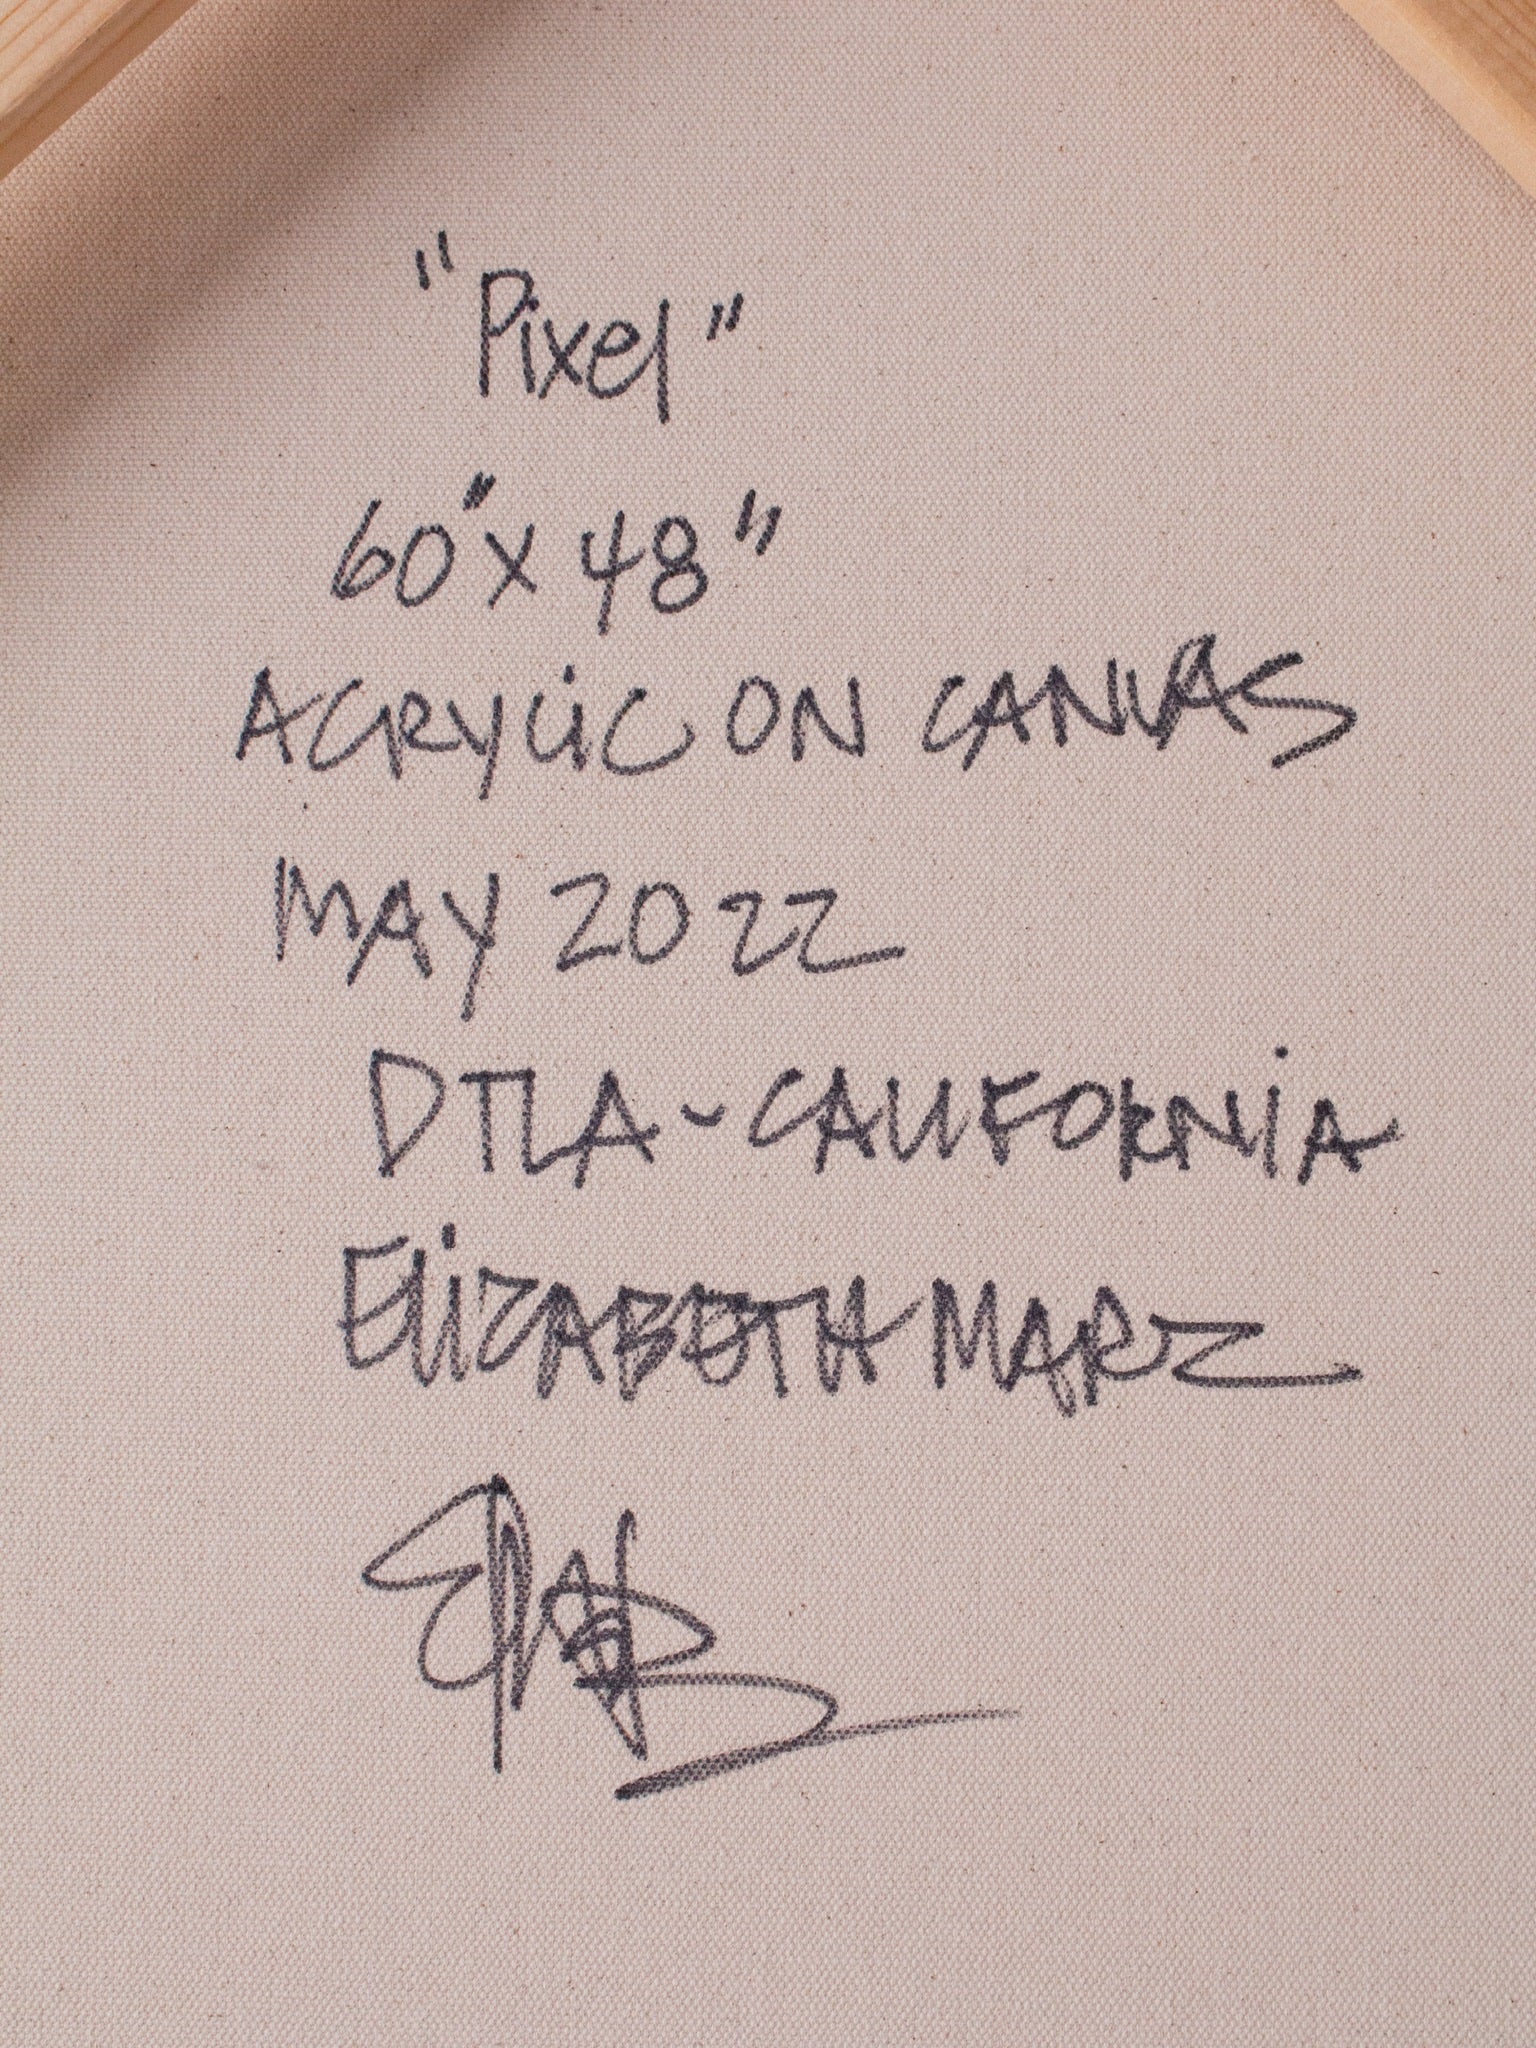 "Pixel"
60" x 48"
ACRYLIC ON CANVAS
MAY 2022
DTLA - CALIFORNIA
ELIZABETH MARZ